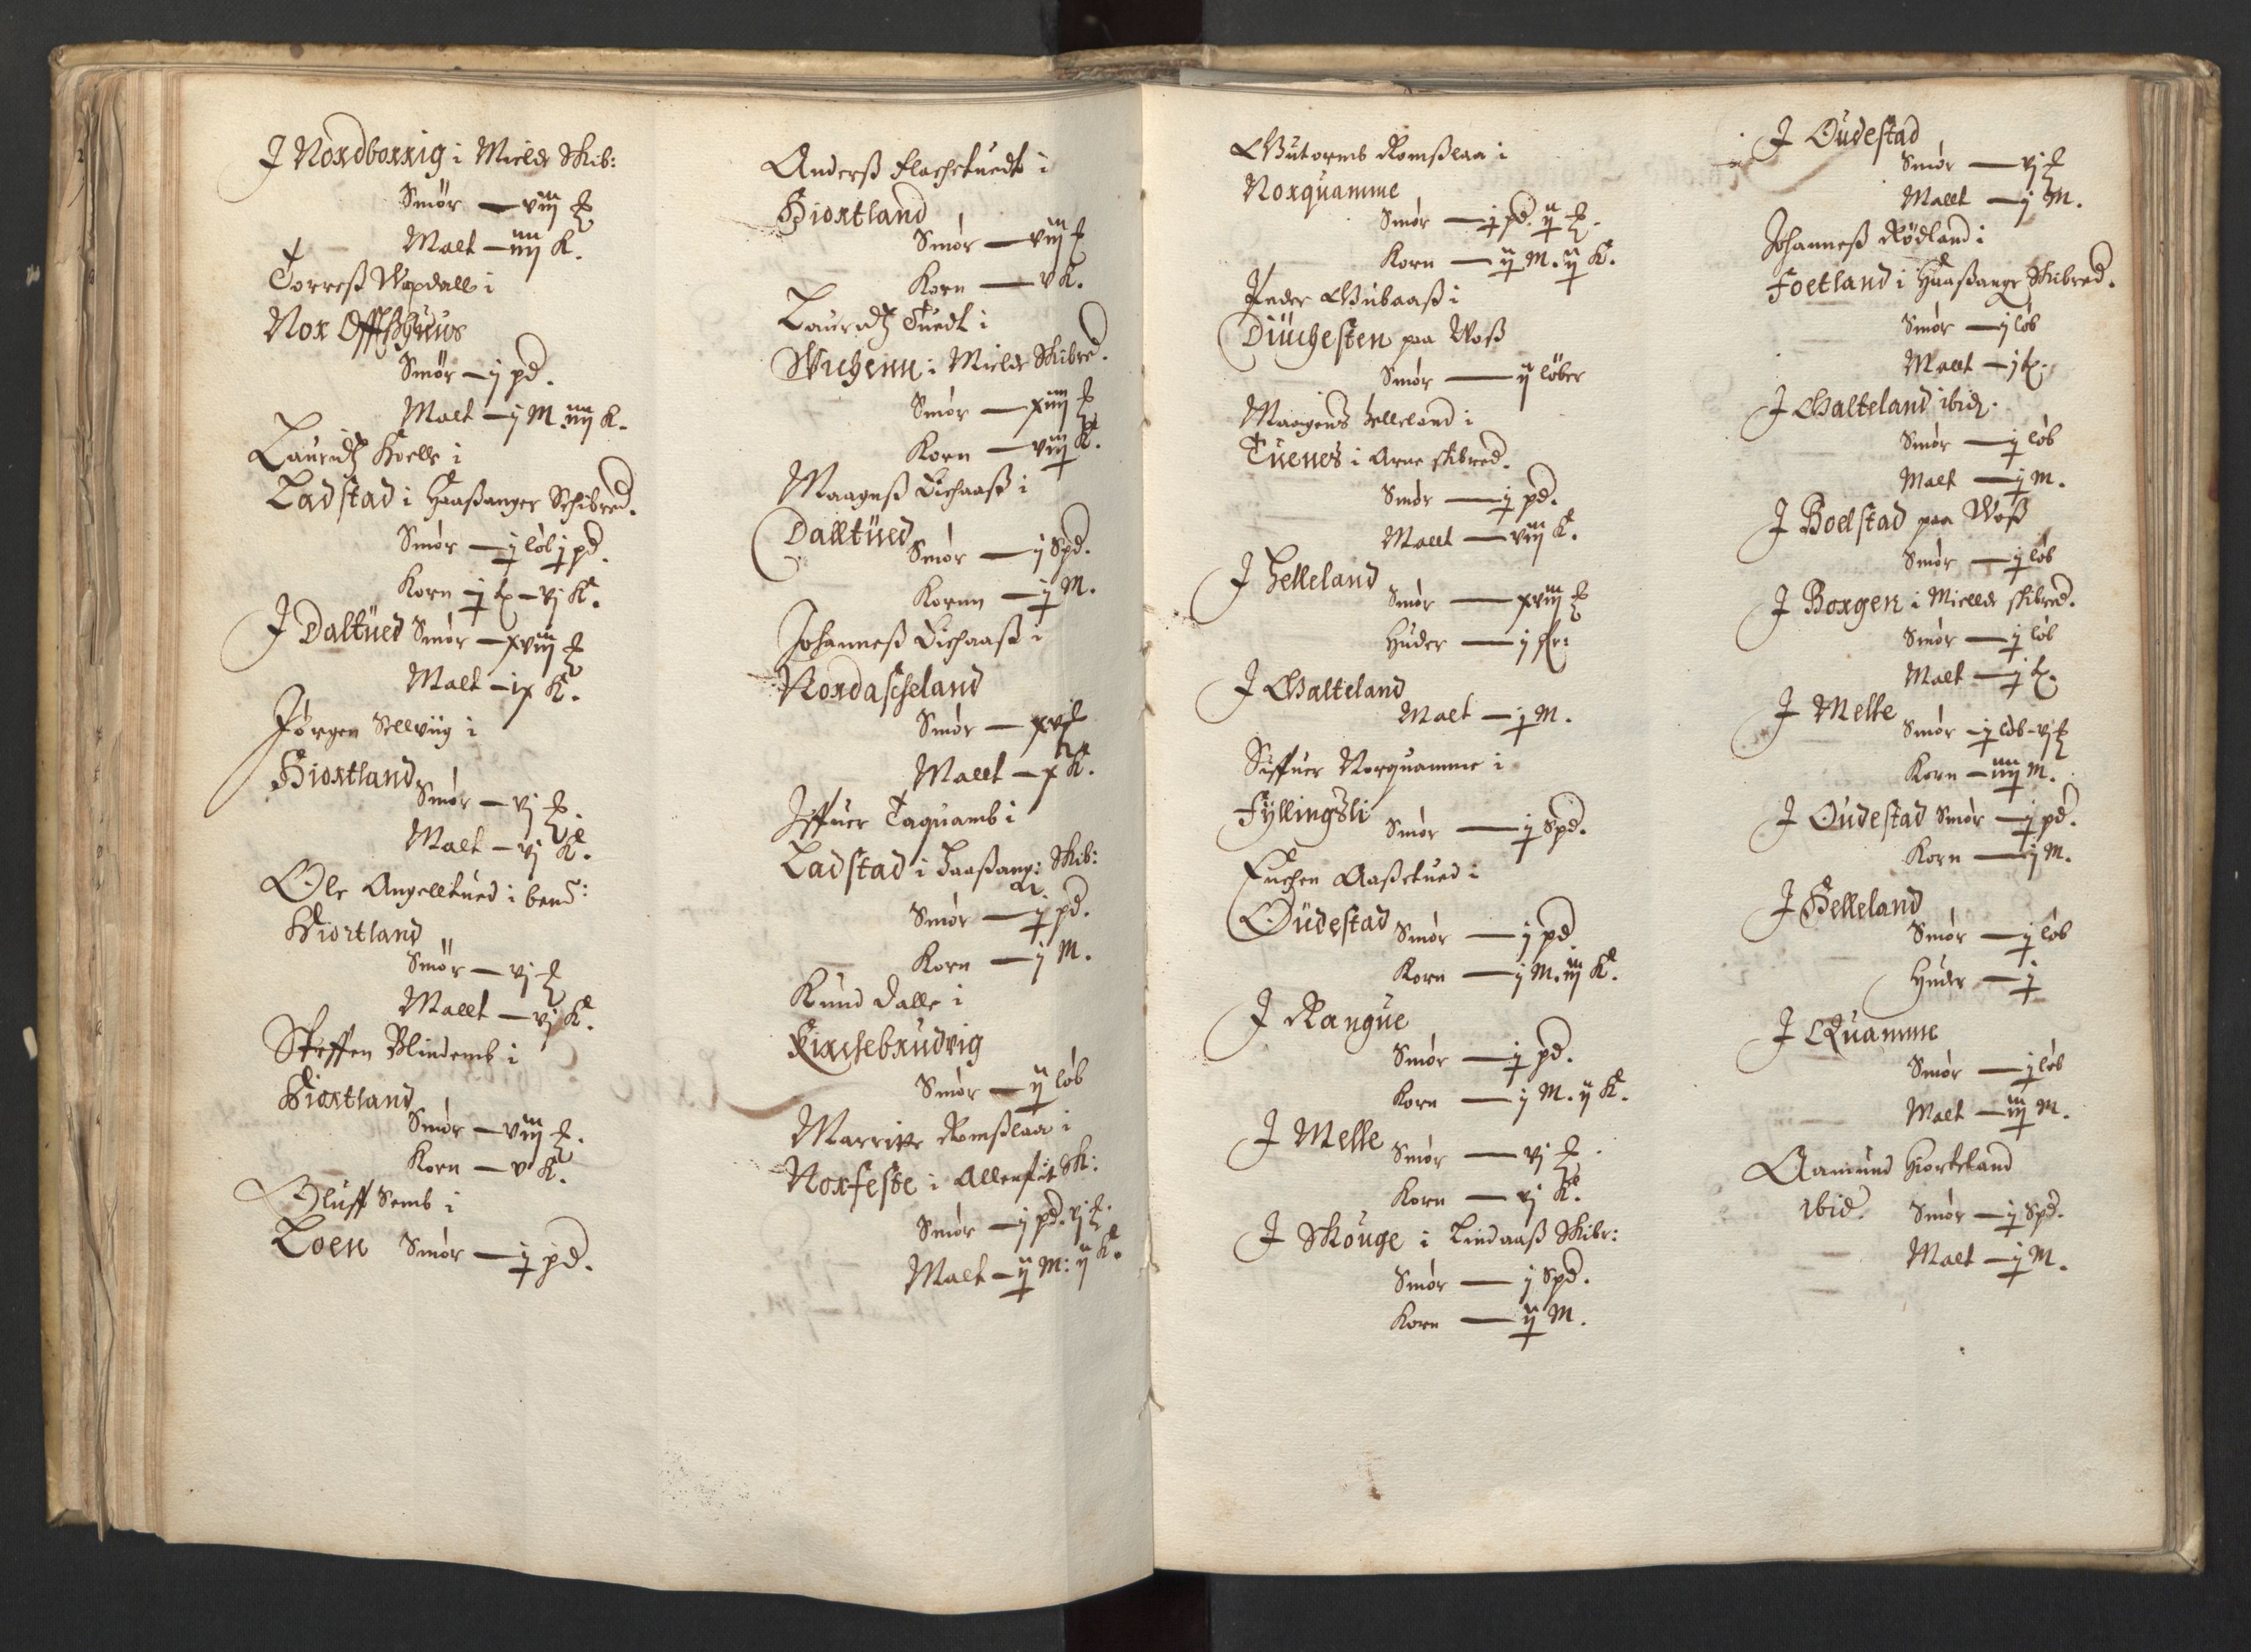 J Nordborrig i Mielde Skib:
Smör — viij
Malt — iiij K.
Torreß Wopdall i
Nor Offßhuus
Smör — j pd.
Malt — j M. iiij K.
Lauridtz Koelle i
Ladstad i Haaßanger Schibred.
Smör — j löb j pd.
Korn j — vj K.
J Daltued Smör — xviij
Malt — ix K.
Jörgen Sellviig i
Hiortland
Smör — vj
Malt — vj K.
Ole Angelltued i bend:
Hiortland
Smör — vj
Mallt — vj K.
Steffen Blindemb i
Hiortland
Smör — viij
Korn — v K.
Oluff Semb i
Loen Smör — j pd.
Anderß Flachetuedt i
Hiortland
Smör — viij
Korn — v K.
Lauridtz Tuedt i
Wichenn i Mielde Skibred.
Smör — xiiij
Korn — viij K.
Maagnß Eichaaß i
Dalltued
Smör — j Spd.
Kornn — j M.
Johanneß Eichaaß i
Nordascheland
Smör — xvj
Mallt — x K.
Iffuer Taquamb i
Ladstad i Haaßang: Skib:
Smör — j pd.
Korn — j M.
Knud Dalle i
Kirchebrudvig
Smör — ij löb
Marritte Romßlaa i
Norfeste i Allenfit Sk:
Smör — j pd. vj
Malt — ij M: ij K.
Gutormb Romßlaa i
Norquamme
Smör — j pd. ij
Korn — ij M. ij K.
Peder Gubaaß i
Diuchesten paa Woß
Smör — ij löber
Maagens Helleland i
Tuenes i Arne skibred.
Smör — j pd.
Mallt — viij K.
J Helleland
Smör — xviij
Huder — j
J Galteland
Malt — j M.
Siffuer Norquamme i
Fyllingsli
Smör — j Spd.
Euchen Aaßetued i
Oudestad
Smör — j pd
Korn — j M. iij K.
J Rangue
Smör — j pd.
Korn — j M. ij K.
J Melle
Smör — vj
Korn — vj K.
J Skouge i Lindaaß Skibr:
Smör — j Spd.
Korn — ij M.
J Oudestad
Smör — vj
Mallt — j M.
Johanneß Rödland i
Foetland i Haaßanger Skibred.
Smör — j löb
Mallt — j
J Galteland ibid.
Smör — j löb
Malt — j M.
J Boelstad paa Woß
Smör — j löb
J Borgen i Miellde skibred.
Smör — j löb
Malt — j
J Melle
Smör — j löb — vj
Korn — iiij M.
J Oudestad Smör — j pd.
Korn — j M.
J Helleland
Smör — j löb
Huder — j
J Quamme
Smör — j löb
Malt — iij M.
Aamund Hiorteland
ibid. Smör — j Spd.
Malt — j M.